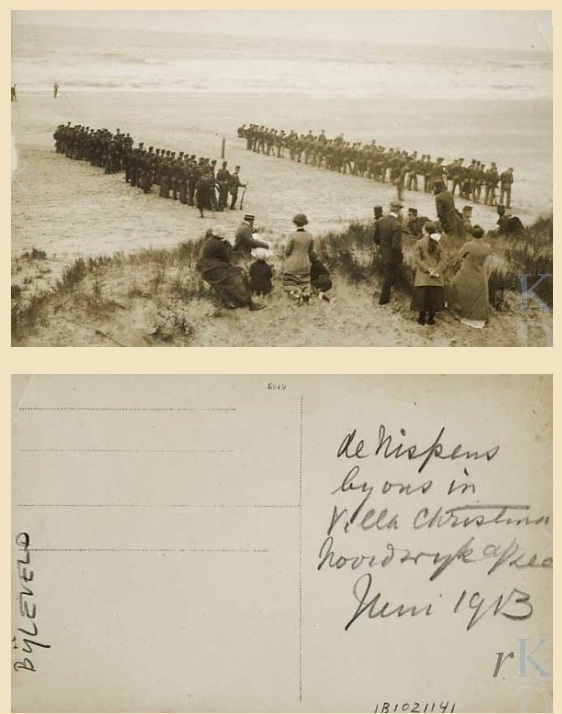 8519
de Nispens
by ons in
Villa Christina
Noordwijk a/zee
Juni 1913
BIJLEVELD
rK
1B1021141
K